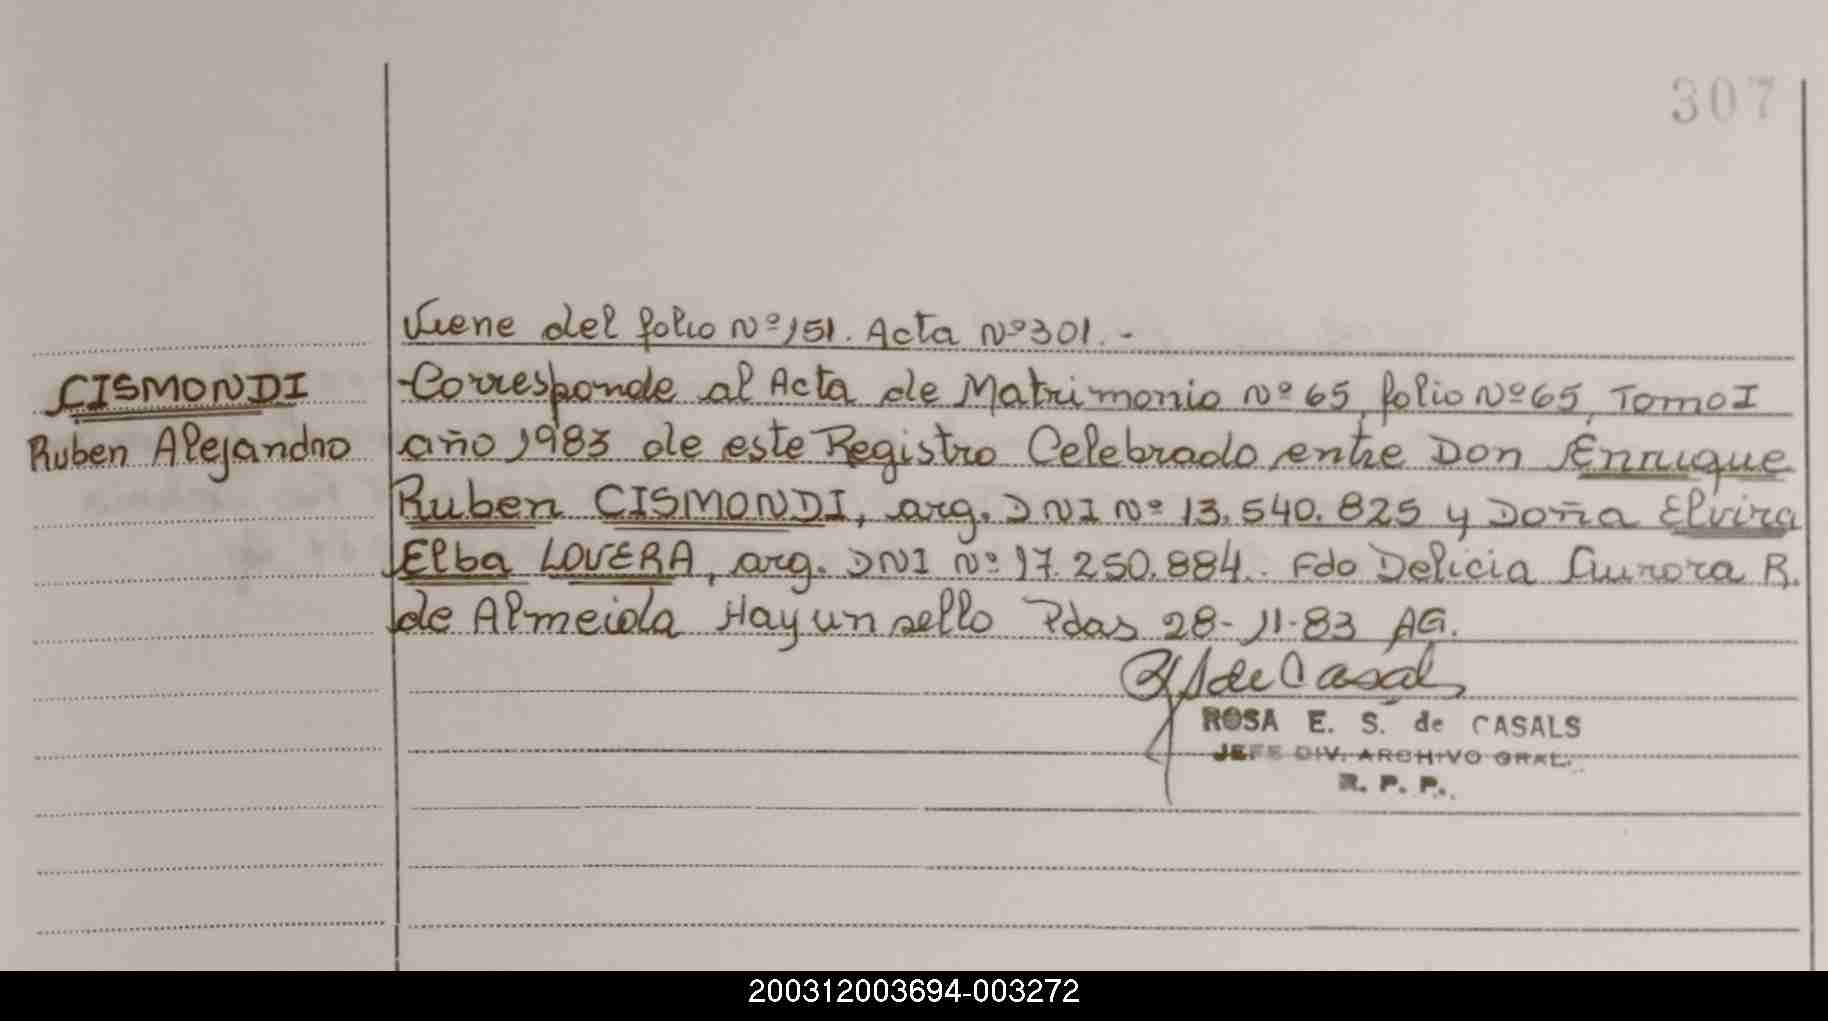 307
Viene del folio Nº 151. Acta Nº 301.-
CISMONDI
Ruben Alejandro
-Corresponde al Acta de Matrimonio Nº 65, folio Nº 65, Tomo I
año 1983 de este Registro Celebrado entre Don Enrrique
Ruben CISMONDI, arg. DNI Nº 13.540.825 y Doña Elvira
Elba LOVERA, arg. DNI Nº 17.250.884.. Fdo Delicia Aurora R.
de Almeida Hay un sello Pdas 28-11-83 AG.
de Casals
ROSA E. S. de CASALS
JEFE DIV. ARCHIVO GRAL.
R. P. P.
200312003694-003272